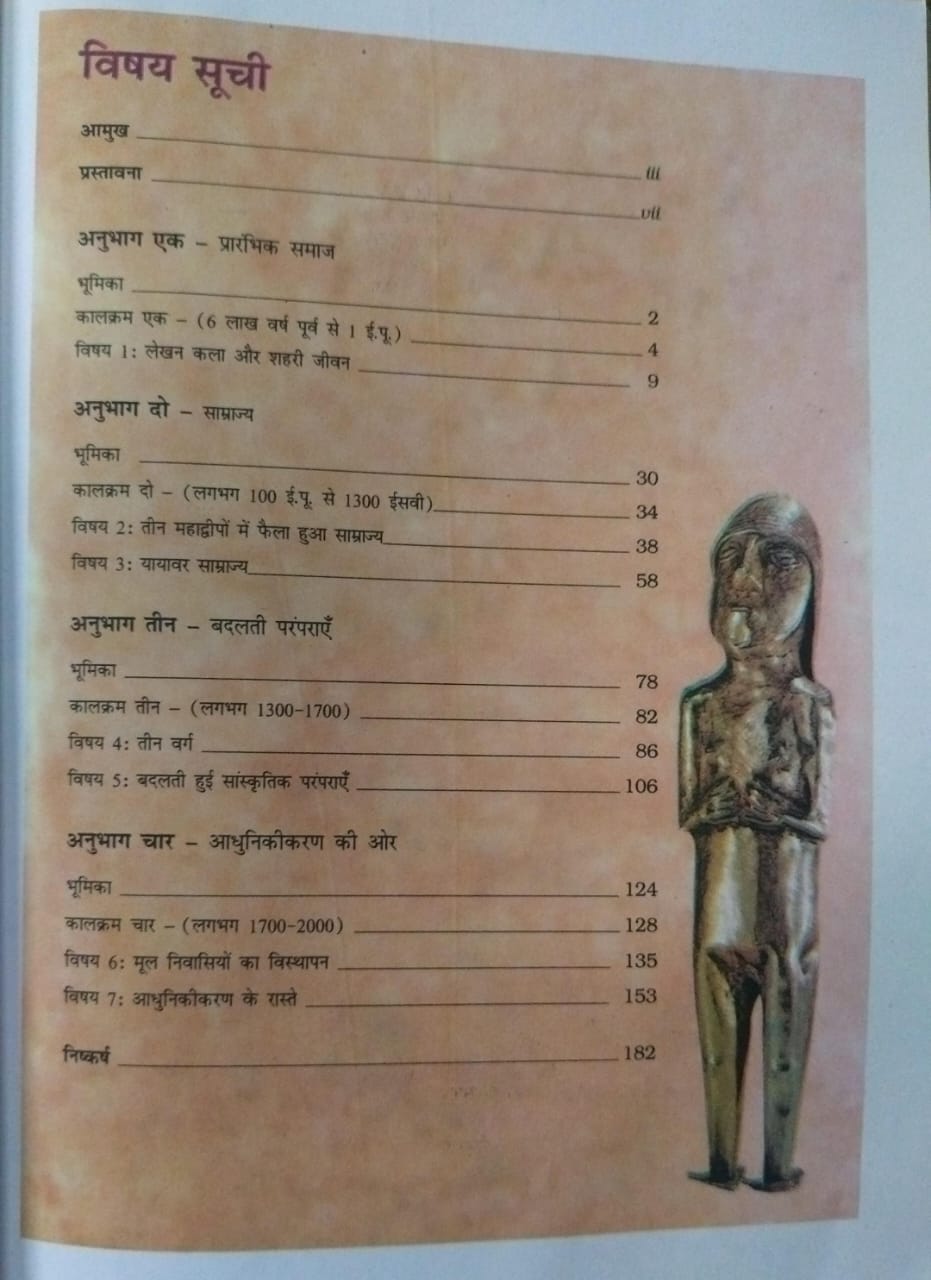 विषय सूची
आमुख iii
प्रस्तावना vii
अनुभाग एक – प्रारंभिक समाज
भूमिका 2
कालक्रम एक – (6 लाख वर्ष पूर्व से 1 ई.पू.) 4
विषय 1: लेखन कला और शहरी जीवन 9
अनुभाग दो – साम्राज्य
भूमिका 30
कालक्रम दो – (लगभग 100 ई.पू. से 1300 ईसवी) 34
विषय 2: तीन महाद्वीपों में फैला हुआ साम्राज्य 38
विषय 3: यायावर साम्राज्य 58
अनुभाग तीन – बदलती परंपराएँ
भूमिका 78
कालक्रम तीन – (लगभग 1300-1700) 82
विषय 4: तीन वर्ग 86
विषय 5: बदलती हुई सांस्कृतिक परंपराएँ 106
अनुभाग चार – आधुनिकीकरण की ओर
भूमिका 124
कालक्रम चार – (लगभग 1700-2000) 128
विषय 6: मूल निवासियों का विस्थापन 135
विषय 7: आधुनिकीकरण के रास्ते 153
निष्कर्ष 182